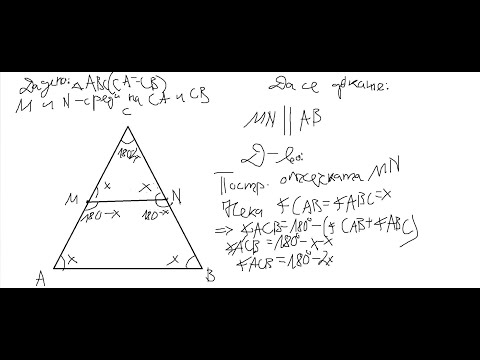 Дадено: △ABC(CA=CB)
M и N-среди на CA и CB
Да се докаже:
MN || AB
Д-во:
Постр. отсечката MN
Нека ∢CAB=∢ABC=x
=> ∢ACB=180°-(∢CAB+∢ABC)
∢ACB=180°-x-x
∢ACB=180°-2x
C
x x
M N
180-x 180-x
x x
A B